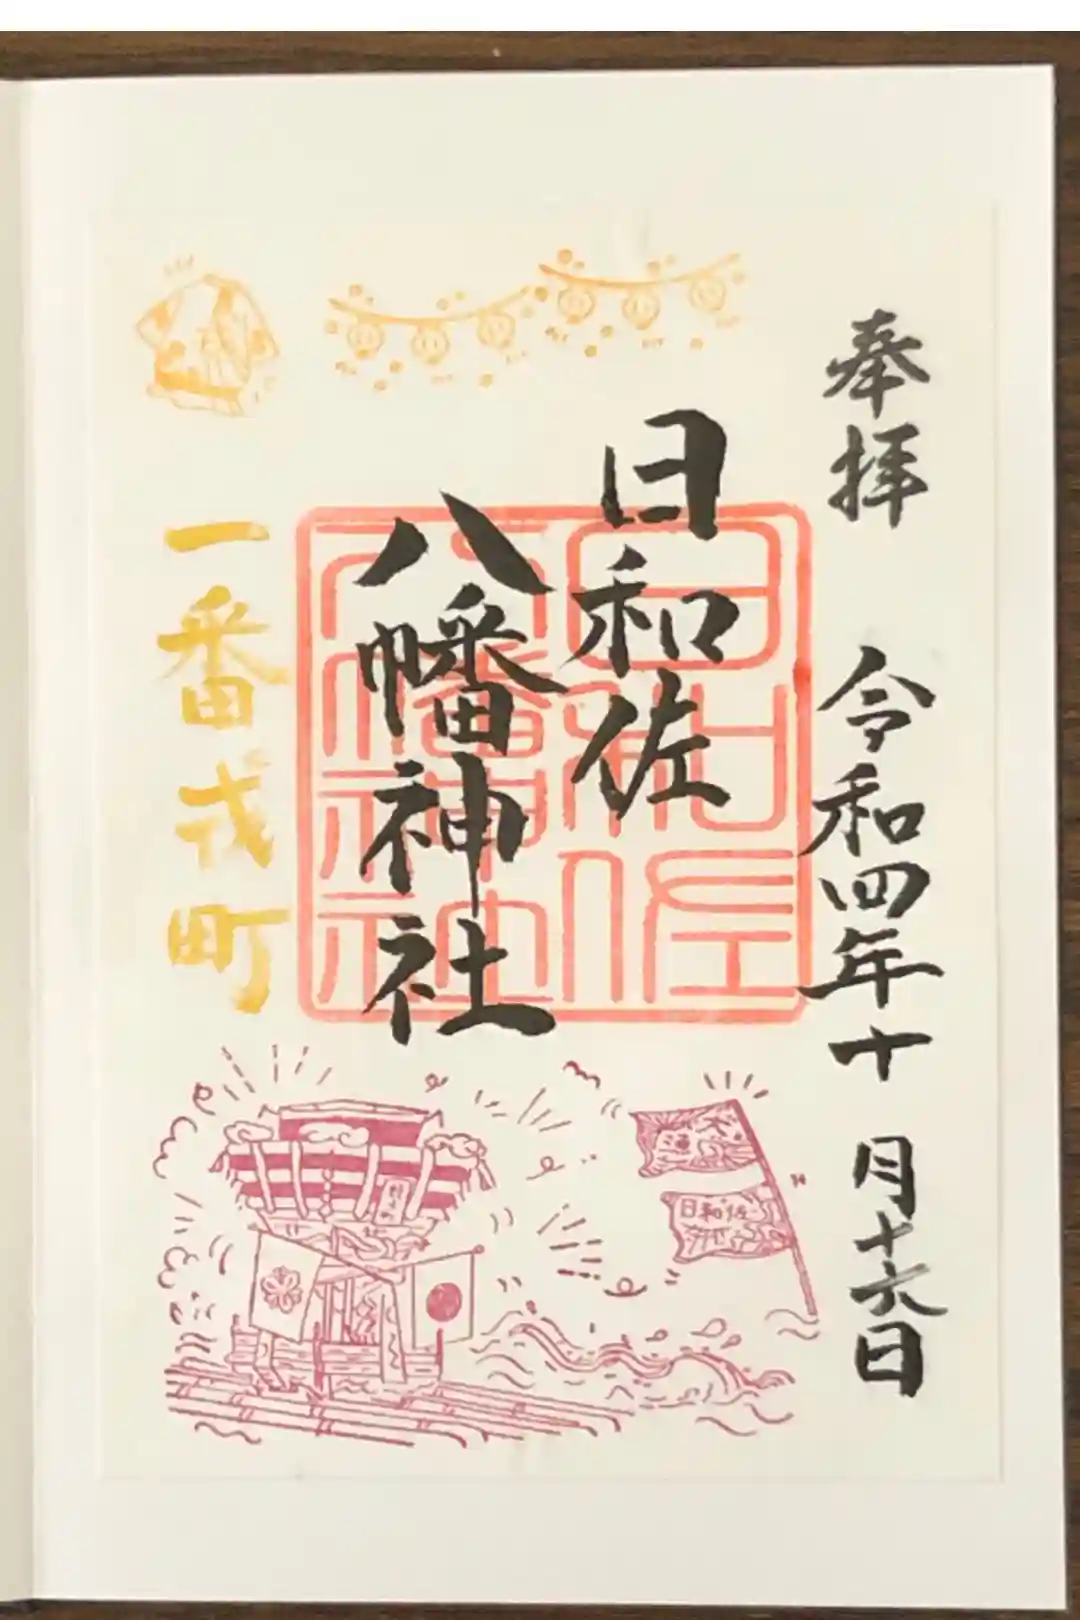 奉拝 令和四年十月十六日
日和佐
八幡神社
一番戎町
日和佐
八幡神社
大漁
日和佐